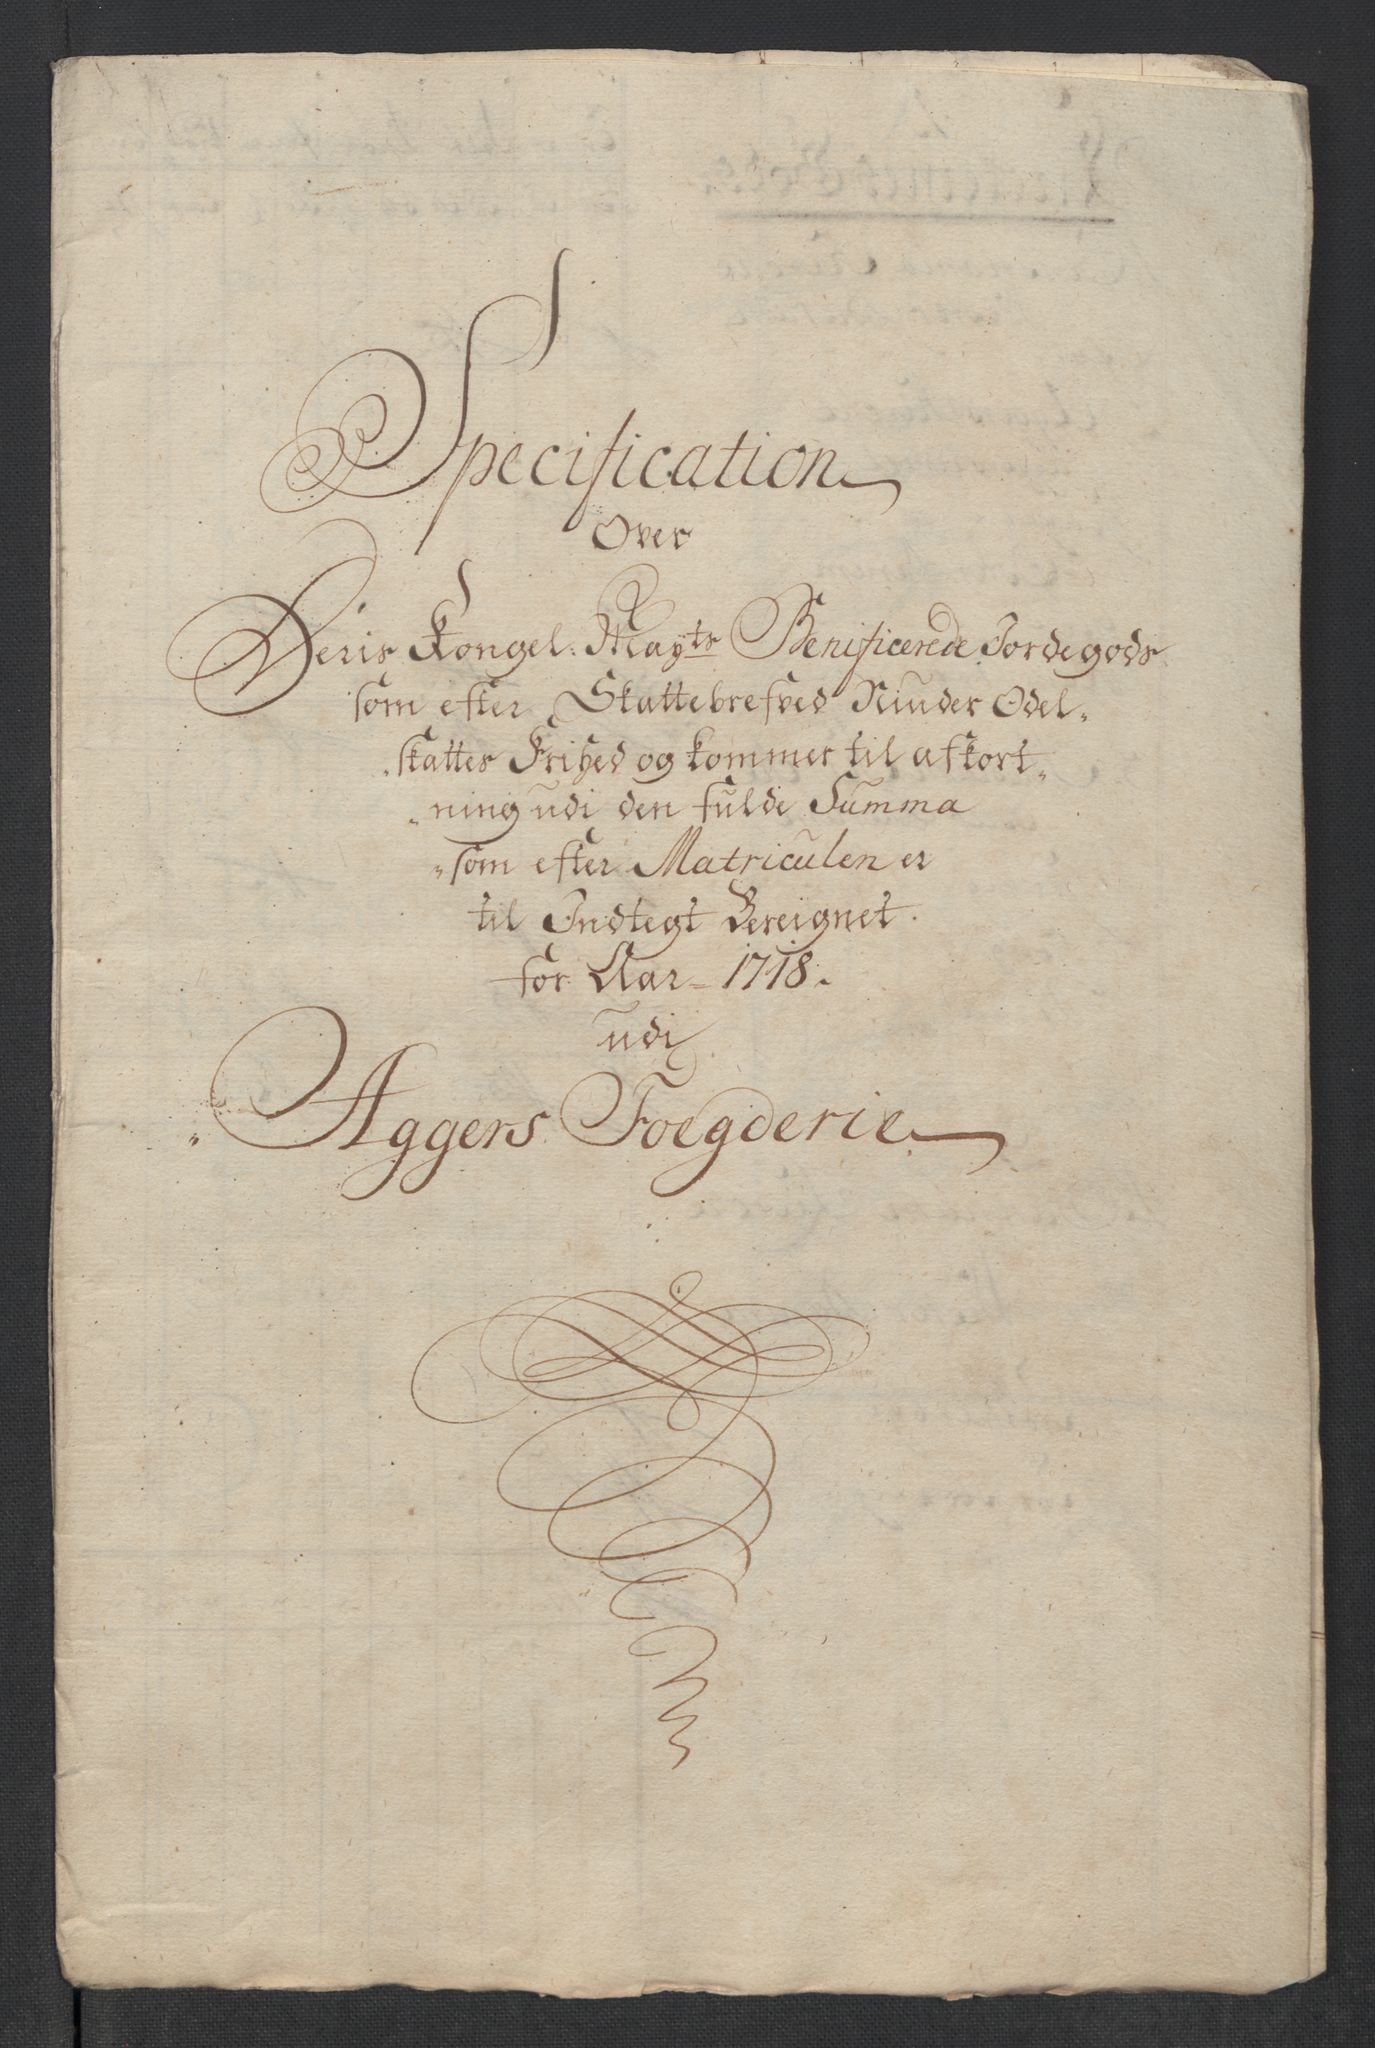 Specification
Over
Deris Kongel: Mayts Benificerede Jordegods
som efter Skattebrefved Niuder Odel-
skattes Frihed og kommer til afkort-
ning udi den fulde Summa
som efter Matriculen er
til Indtegt Bereignet.
for Aar 1718.
udi
Aggers Foegderie